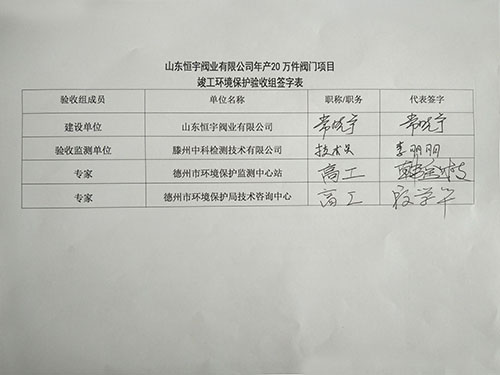 山东恒宇阀业有限公司年产20万件阀门项目
竣工环境保护验收组签字表
验收组成员 单位名称 职称/职务 代表签字
建设单位 山东恒宇阀业有限公司 常晓宇 常晓宇
验收监测单位 滕州中科检测技术有限公司 技术员 李明明
专家 德州市环境保护监测中心站 高工
专家 德州市环境保护局技术咨询中心 高工 段学军